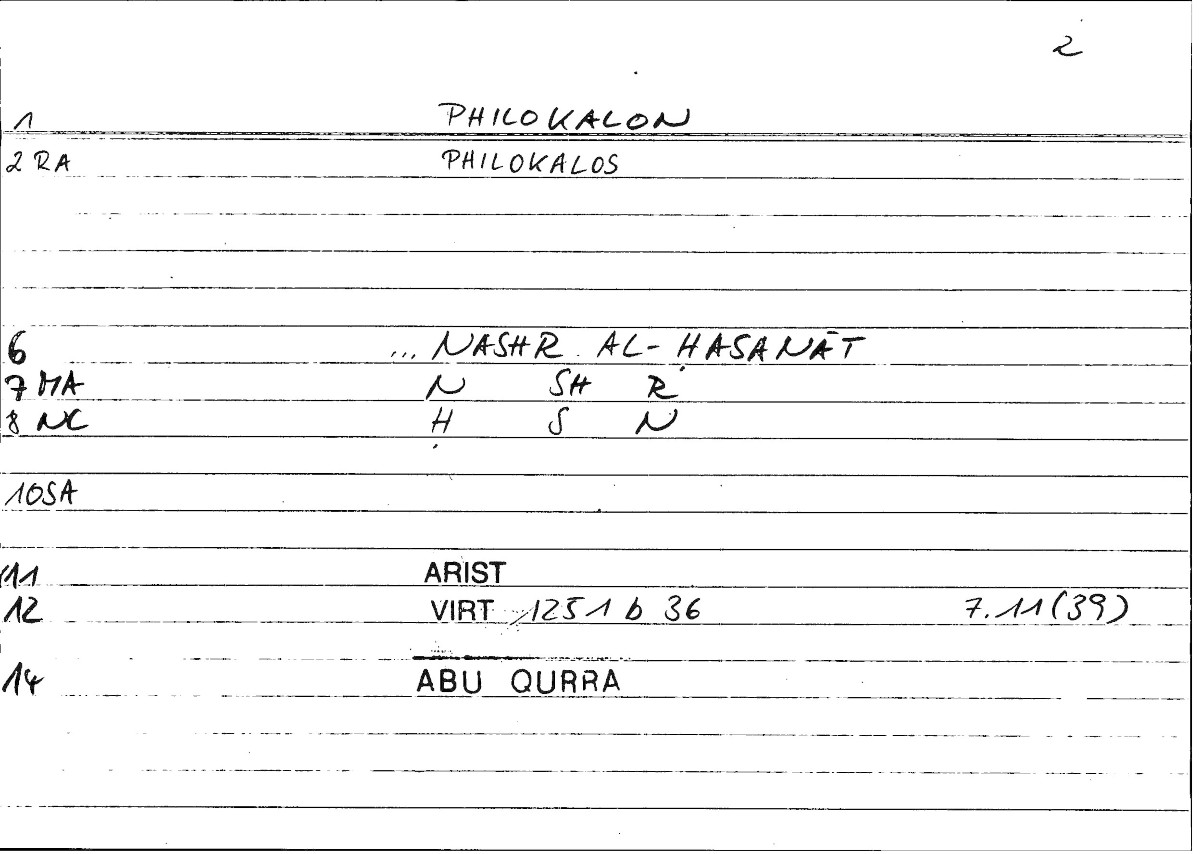 2
1 PHILOKALON
2 RA PHILOKALOS
6 ... NASHR AL-ḤASANĀT
7 MA N SH R
8 NC Ḥ S N
10SA
11 ARIST
12 VIRT 1251 b 36 7.11(39)
14 ABU QURRA